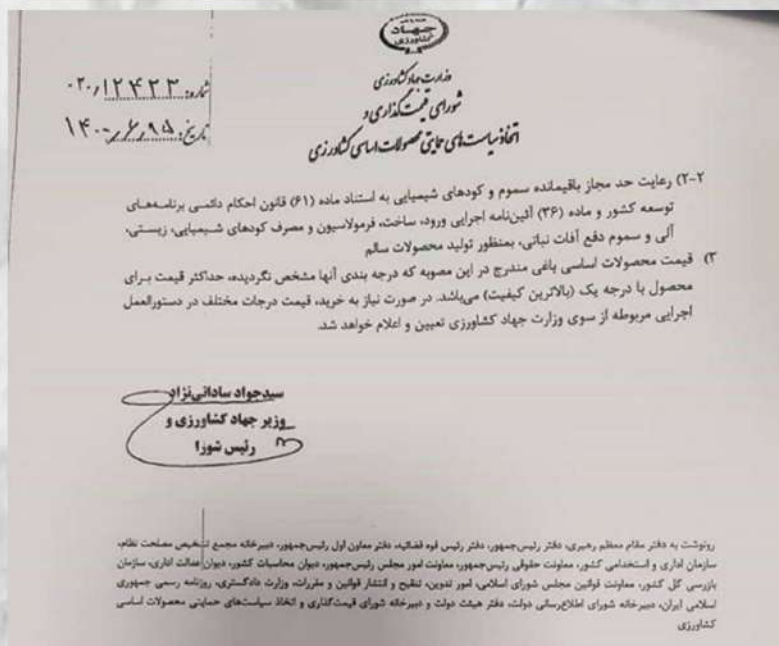 جهاد
کشاورزی
وزارت جهاد کشاورزی
شورای قیمت گذاری و
اتخاذ سیاست های حمایتی محصولات اساسی کشاورزی
شماره: ۰۲۰/۱۲۴۲۳
تاریخ: ۱۴۰۰/۶/۱۵
۲-۲) رعایت حد مجاز باقیمانده سموم و کودهای شیمیایی به استناد ماده (۶۱) قانون احکام دائمی برنامه‌های
توسعه کشور و ماده (۳۶) آئین‌نامه اجرایی ورود، ساخت، فرمولاسیون و مصرف کودهای شیمیایی، زیستی،
آلی و سموم دفع آفات نباتی، بمنظور تولید محصولات سالم
۳) قیمت محصولات اساسی باغی مندرج در این مصوبه که درجه بندی آنها مشخص نگردیده، حداکثر قیمت برای
محصول با درجه یک (بالاترین کیفیت) می‌باشد. در صورت نیاز به خرید، قیمت درجات مختلف در دستورالعمل
اجرایی مربوطه از سوی وزارت جهاد کشاورزی تعیین و اعلام خواهد شد.
سیدجواد ساداتی‌نژاد
وزیر جهاد کشاورزی و
رئیس شورا
رونوشت به دفتر مقام معظم رهبری، دفتر رئیس‌جمهور، دفتر رئیس قوه قضائیه، دفتر معاون اول رئیس‌جمهور، دبیرخانه مجمع تشخیص مصلحت نظام،
سازمان اداری و استخدامی کشور، معاونت حقوقی رئیس‌جمهور، معاونت امور مجلس رئیس‌جمهور، دیوان محاسبات کشور، دیوان عدالت اداری، سازمان
بازرسی کل کشور، معاونت قوانین مجلس شورای اسلامی، امور تدوین، تنقیح و انتشار قوانین و مقررات، وزارت دادگستری، روزنامه رسمی جمهوری
اسلامی ایران، دبیرخانه شورای اطلاع‌رسانی دولت، دفتر هیئت دولت و دبیرخانه شورای قیمت‌گذاری و اتخاذ سیاست‌های حمایتی محصولات اساسی
کشاورزی